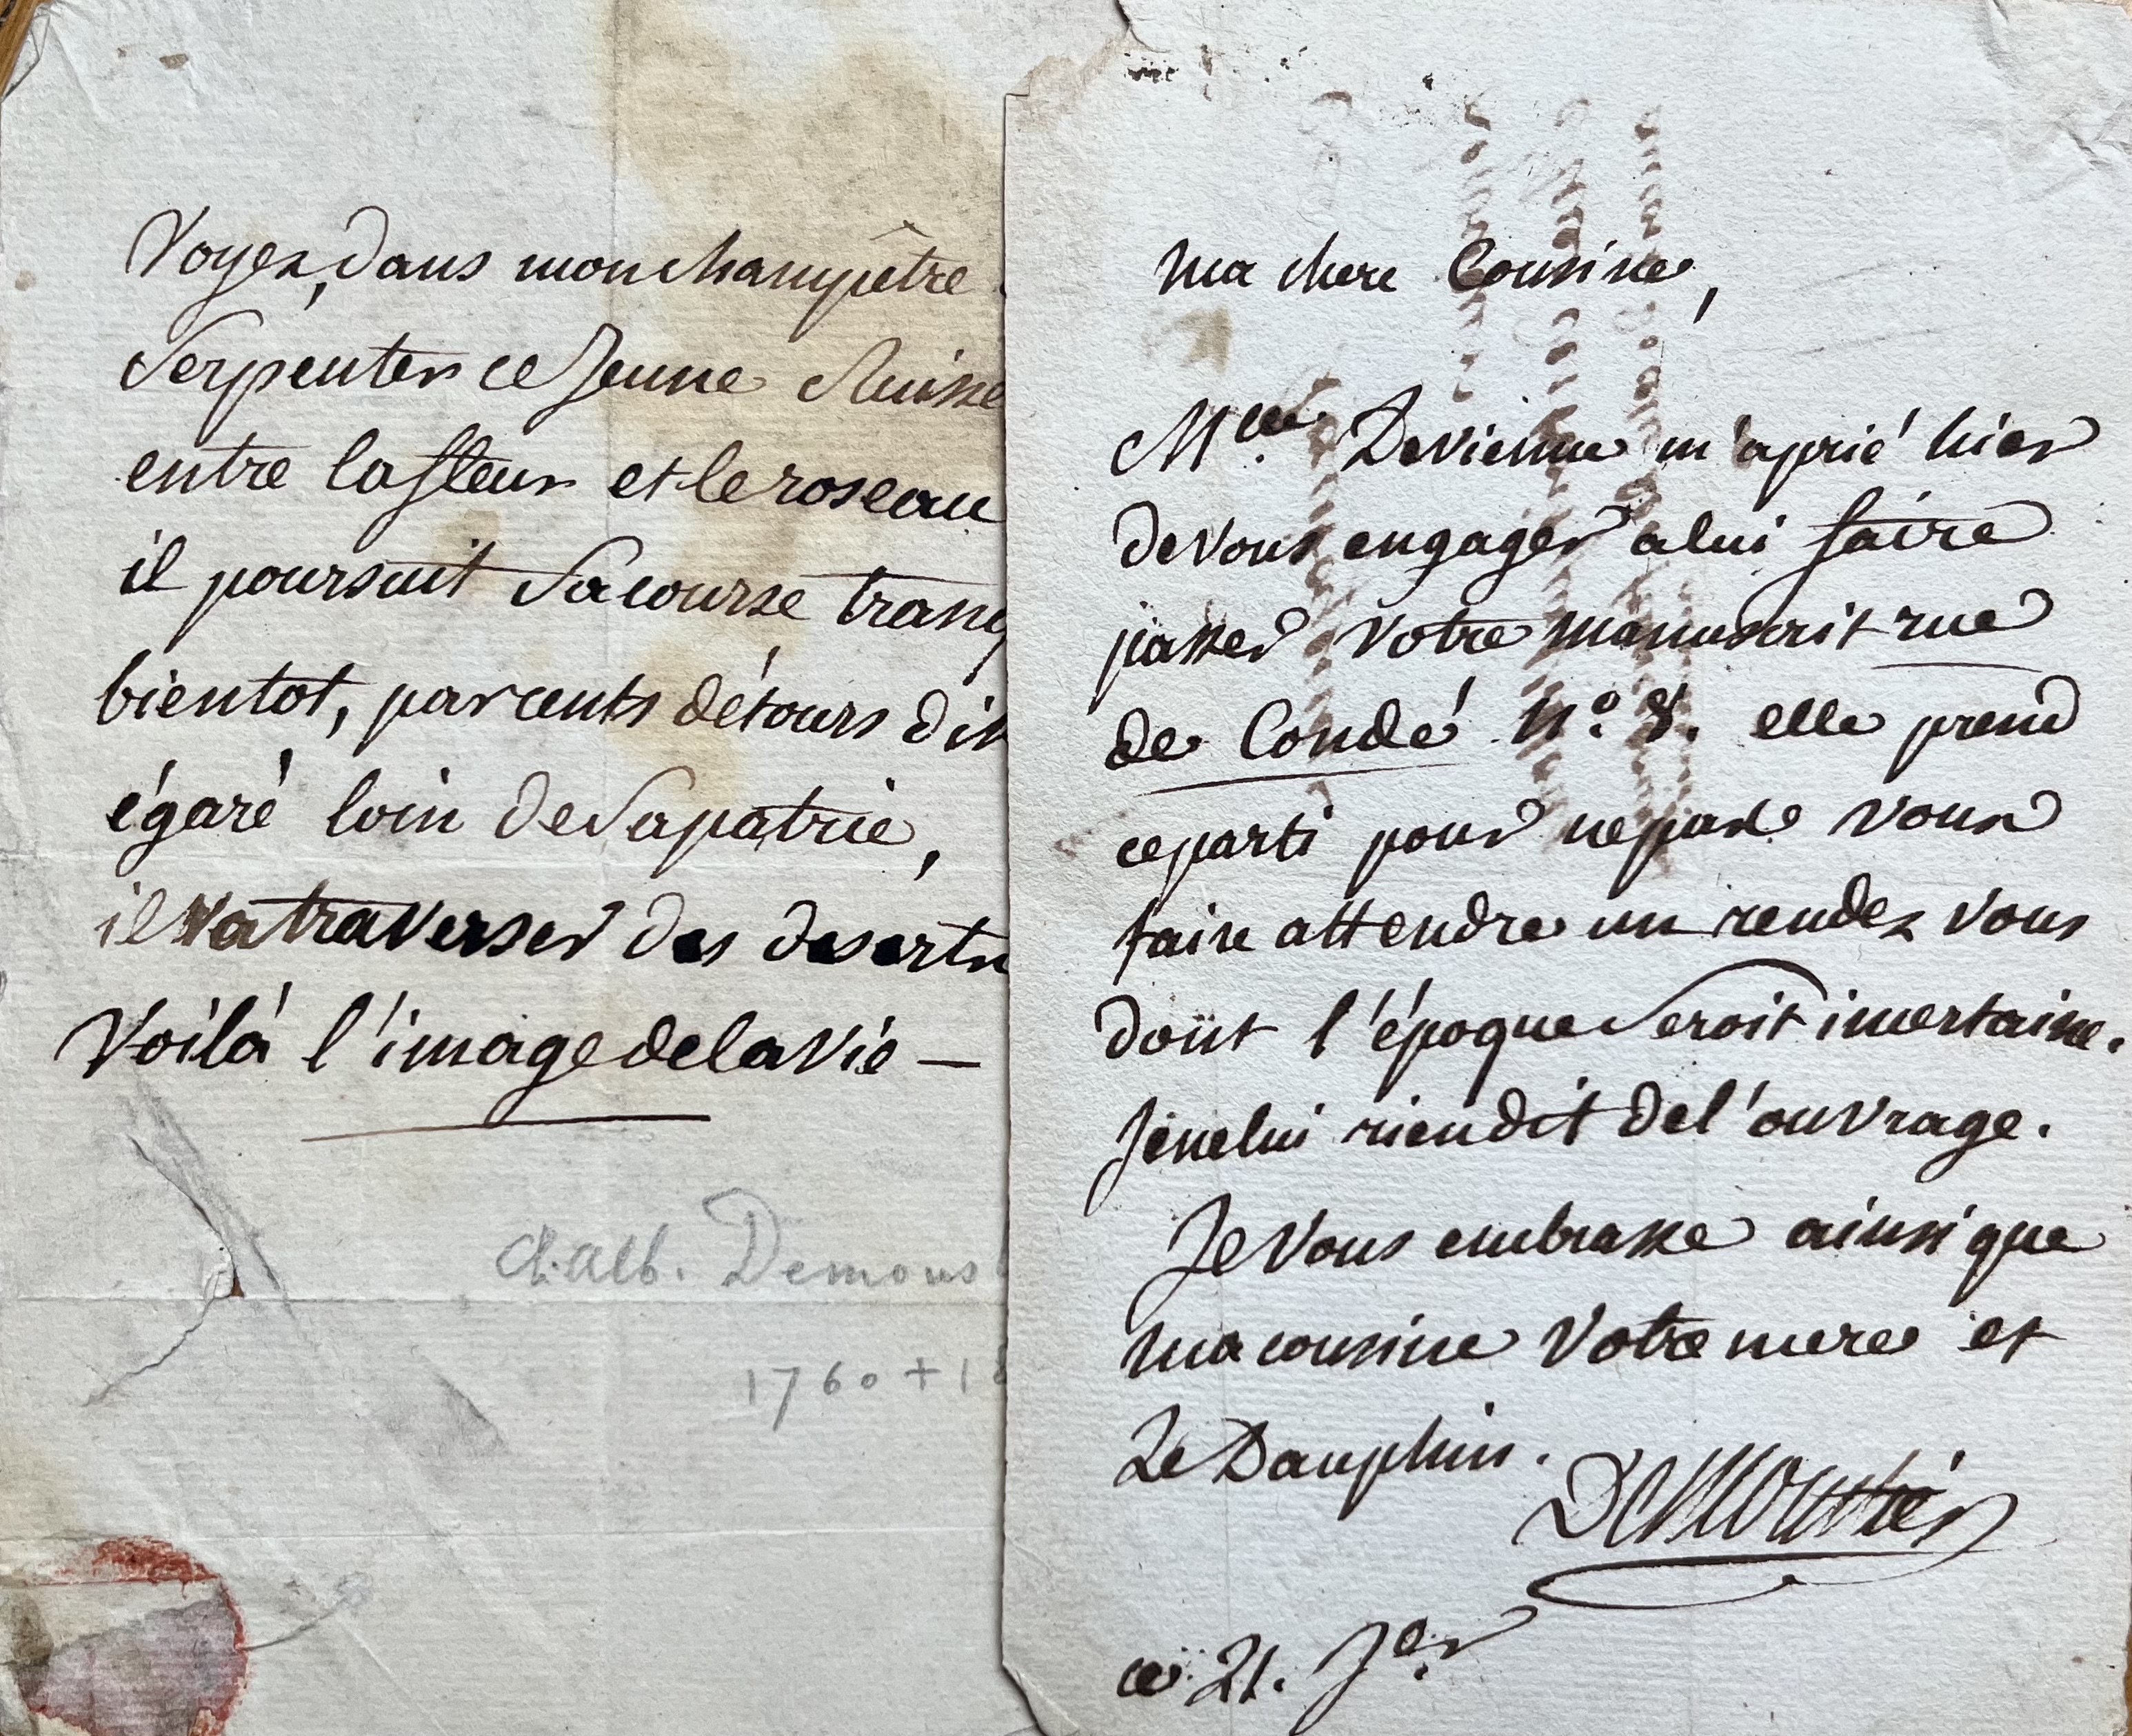 Voyez, dans mon champêtre
Serpenter ce Jeune Ruisse
entre la fleur et le roseau
il poursuit Sa course tranq
bientot, par cents détours di
égaré loin de Sa patrie,
il va traverser des deserts
Voilà l'image de la vie —
Ch. Alb. Demous
1760 + 1
ma chere Cousine,
Melle Devienne m'a prié hier
de vous engager a lui faire
passer votre manuscrit rue
de Condé n.° 8. elle prend
ce parti pour ne pas vous
faire attendre un rendez vous
dont l'époque Seroit incertaine.
Je ne lui rien dit de l'ouvrage.
Je vous embrasse ainsi que
ma cousine votre mere et
Le Dauphin.
Demoustier
ce 21. Jer